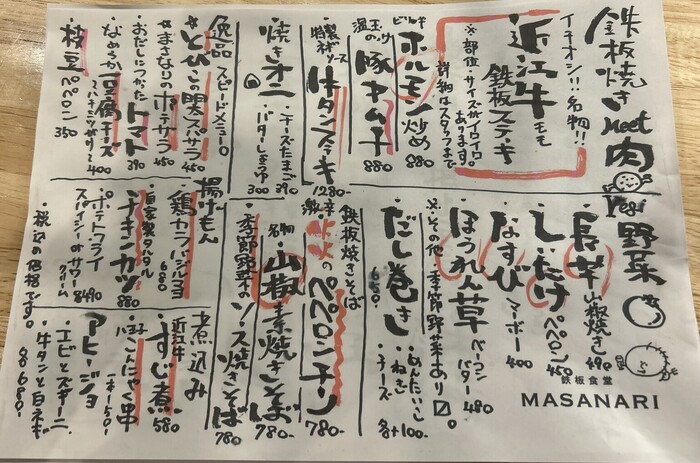 鉄板焼き Meet 肉
イチオシ!!名物!!
近江牛モモ
鉄板ステーキ
※部位・サイズがイロイロ
あります。
詳細はスタッフまで
ホルモン炒め 880
温玉のっけ 豚キムチ 880
特製ソース
牛タンステーキ 1280-
焼きオニ
・チーズたまご 390
・バターしょうゆ 300
逸品 スピードメニュー。
・とびこの明太パスサラ 450
・まさなりのポテサラ 450
・おだしにつかったトマト 390
・なめらか豆腐チーズ
〜ハチミツがけ〜 400
・枝豆ペペロン 350
Vegi 野菜
・長芋 山椒焼き 490
・しいたけ ペペロン 450
・なすび マーボー 400
・ほうれん草 ベーコンバター 480
※その他、季節野菜あり〼。
・だし巻き 650
・めんたいこ
・ねぎ
・チーズ 各+100-
鉄板焼きそば
激辛 火火のペペロンチーノ 780-
名物 山椒素焼きそば 780-
・季節野菜のソース焼きそば 780
揚げもん
・鶏カラバジルマヨ 680
・自家製タルタル
チキンカツ 880
・ポテトフライ
スパイシー or サワークリーム 各490
煮込み
・近江牛
すじ煮 580
・八子こんにゃく串 一本150-
アヒージョ
・エビとズッキーニ
・牛タンと白ネギ
各680-
・税込の価格です。
鉄板食堂
MASANARI